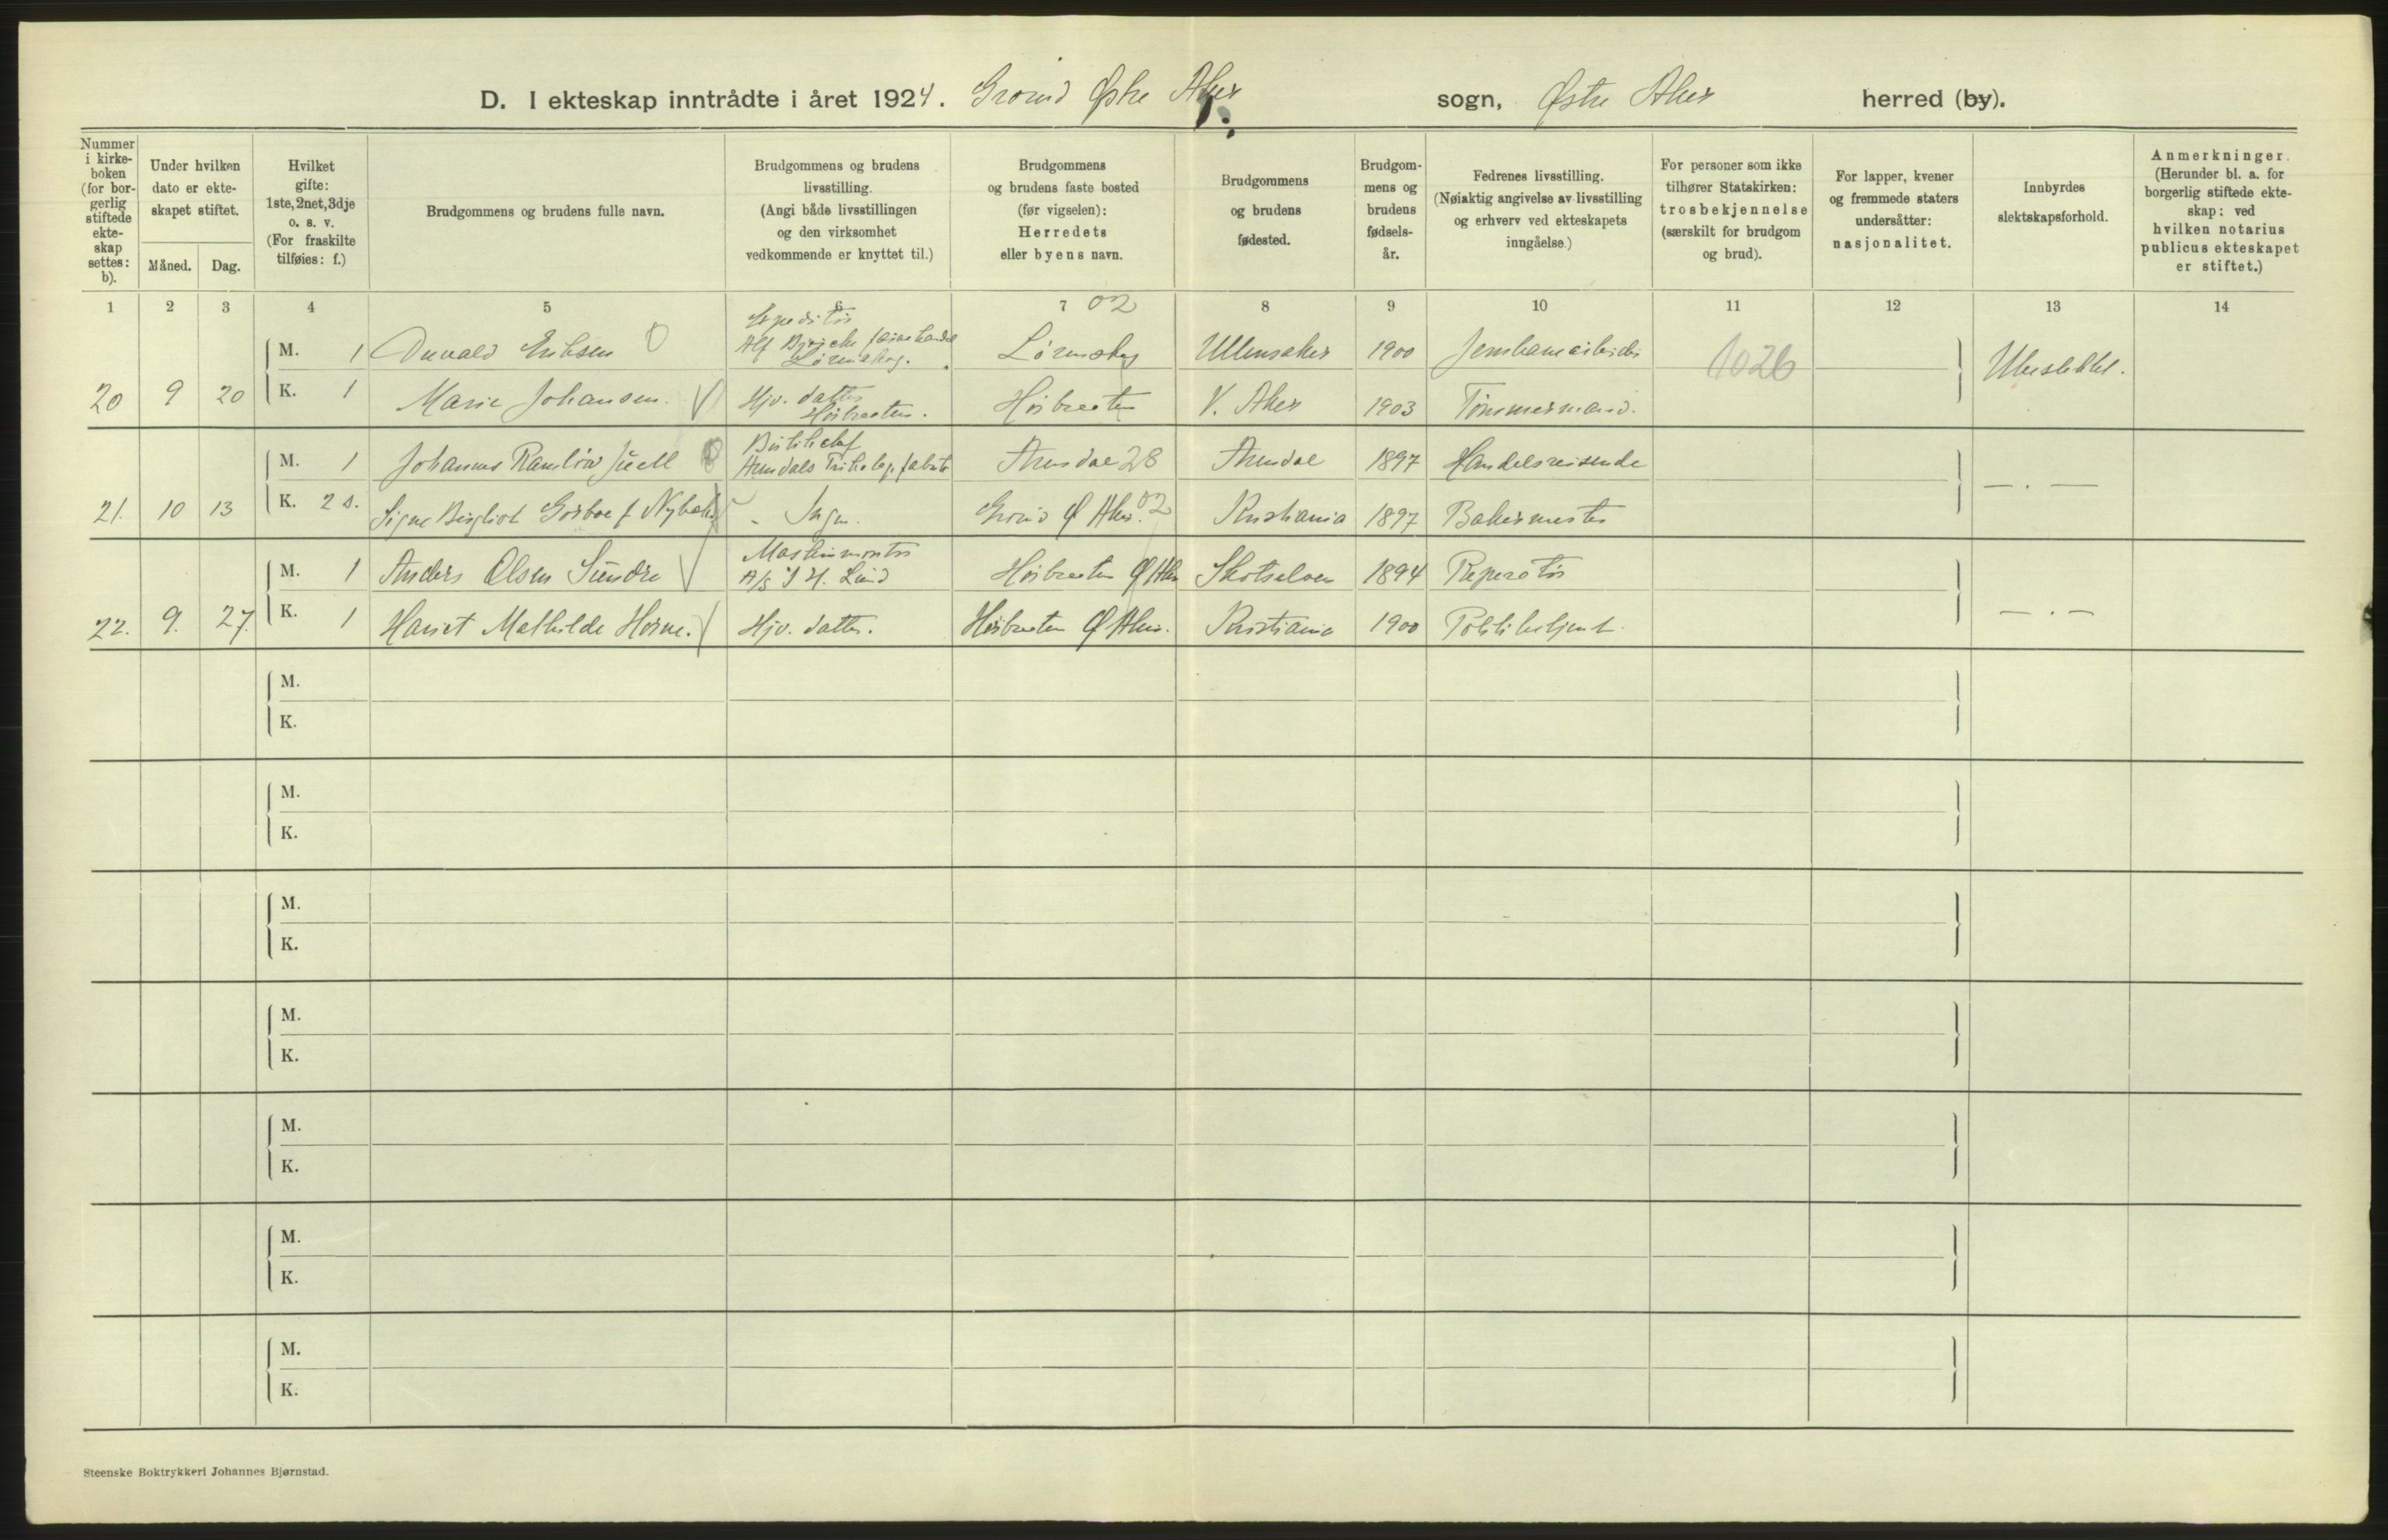 D. I ekteskap inntrådte i året 1924. Grorud Østre Aker sogn, Østre Aker herred (by).
Nummer i kirkeboken (for borgerlig stiftede ekteskap settes: b).
Under hvilken dato er ekteskapet stiftet.
Måned.
Dag.
Hvilket gifte: 1ste, 2net, 3dje o. s. v. (For fraskilte tilføies: f.)
Brudgommens og brudens fulle navn.
Brudgommens og brudens livsstilling. (Angi både livsstillingen og den virksomhet vedkommende er knyttet til.)
Brudgommens og brudens faste bosted (før vigselen): Herredets eller byens navn.
Brudgommens og brudens fødested.
Brudgommens og brudens fødselsår.
Fedrenes livsstilling. (Nøiaktig angivelse av livsstilling og erhverv ved ekteskapets inngåelse.)
For personer som ikke tilhører Statskirken: trosbekjennelse (særskilt for brudgom og brud).
For lapper, kvener og fremmede staters undersåtter: nasjonalitet.
Innbyrdes slektskapsforhold.
Anmerkninger. (Herunder bl. a. for borgerlig stiftede ekteskap: ved hvilken notarius publicus ekteskapet er stiftet.)
1 2 3 4 5 6 7 8 9 10 11 12 13 14
02
M. 1 Eriksen 0 Expeditør Alf Lørenskog. Lørenskog Ullensaker 1900 Jernbanearbeider 1026 Ubeslektet.
20 9 20 K. 1 Marie Johansen. V Hjv. datter Høibraaten. Høibraaten V. Aker 1903 Tømmermand.
M. 1 Johannes Ramløw Juell 0 Arendals Arendal 28 Arendal 1897 Handelsreisende
21. 10 13 K. 2 s. Signe Bergliot f Grorud Ø Aker. 02 Kristiania 1897 Bakermester — . —
M. 1 Anders Olsen Sundre V Maskinmontør A/S Lund Høibraaten Ø Aker Skotselven 1894 Reperatør
22. 9. 27. K. 1 Hariet Mathilde Horne. Hjv. datter. Høibraaten Ø Aker. Kristiania 1900 Politibetjent. — . —
M.
K.
M.
K.
M.
K.
M.
K.
M.
K.
M.
K.
M.
K.
Steenske Boktrykkeri Johannes Bjørnstad.